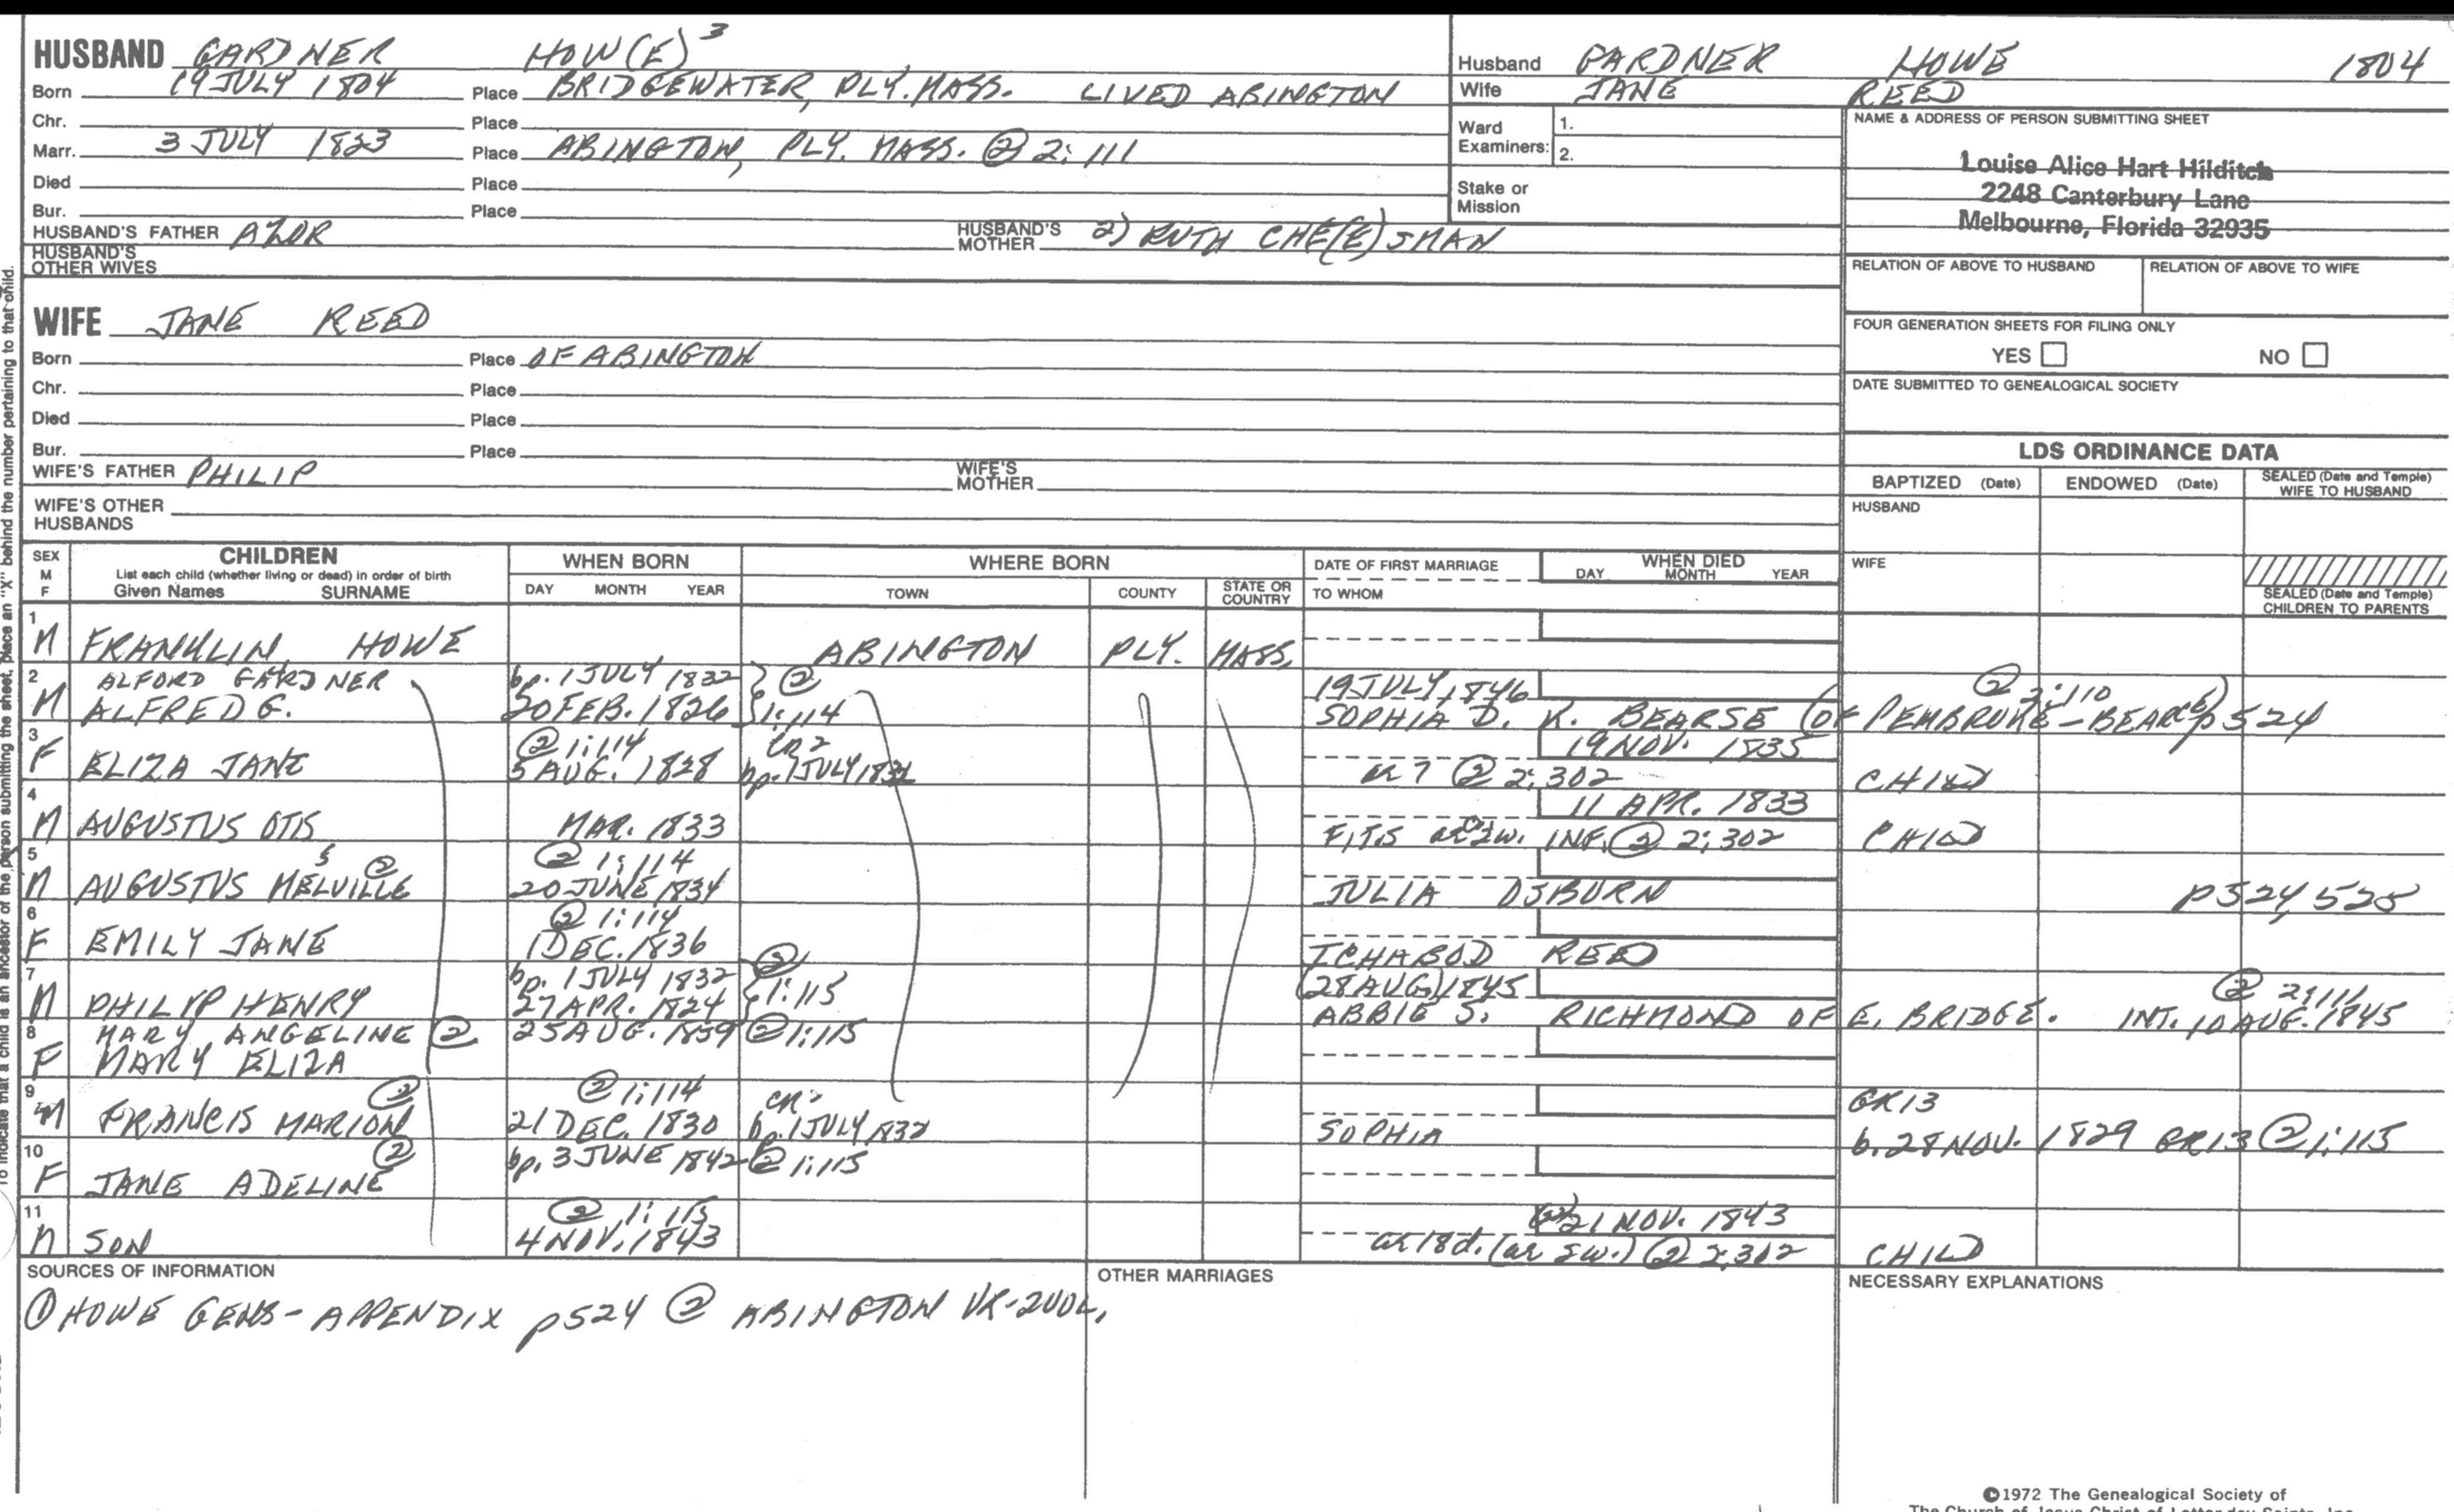 HUSBAND GARDNER HOW(E)³
Born 19 JULY 1804 Place BRIDGEWATER, PLY. MASS. LIVED ABINGTON
Chr. Place
Marr. 3 JULY 1823 Place ABINGTON, PLY. MASS. ② 2:111
Died Place
Bur. Place
HUSBAND'S FATHER AZOR HUSBAND'S MOTHER 2) RUTH CHE(E)SMAN
HUSBAND'S OTHER WIVES
Husband GARDNER HOWE 1804
Wife JANE REED
Ward Examiners: 1.
2.
Stake or Mission
NAME & ADDRESS OF PERSON SUBMITTING SHEET
Louise Alice Hart Hilditch
2248 Canterbury Lane
Melbourne, Florida 32935
RELATION OF ABOVE TO HUSBAND RELATION OF ABOVE TO WIFE
FOUR GENERATION SHEETS FOR FILING ONLY
YES NO
DATE SUBMITTED TO GENEALOGICAL SOCIETY
WIFE JANE REED
Born Place OF ABINGTON
Chr. Place
Died Place
Bur. Place
WIFE'S FATHER PHILIP WIFE'S MOTHER
WIFE'S OTHER HUSBANDS
LDS ORDINANCE DATA
BAPTIZED (Date) ENDOWED (Date) SEALED (Date and Temple) WIFE TO HUSBAND
HUSBAND
WIFE
SEALED (Date and Temple) CHILDREN TO PARENTS
SEX M F
CHILDREN
List each child (whether living or dead) in order of birth
Given Names SURNAME
WHEN BORN
DAY MONTH YEAR
WHERE BORN
TOWN COUNTY STATE OR COUNTRY
DATE OF FIRST MARRIAGE
TO WHOM
WHEN DIED
DAY MONTH YEAR
1
M FRANKLIN HOWE ABINGTON PLY. MASS.
2 ALFORD GARDNER bp. 1 JULY 1832 ② 19 JULY, 1846 ② 2:110
M ALFRED G. 20 FEB. 1826 1:114 SOPHIA D. K. BEARSE (OF PEMBROKE - BEARCE) p524
3 ② 1:114 CR2 19 NOV. 1835
F ELIZA JANE 5 AUG. 1828 bp. 1 JULY 1832 ae 7 ② 2:302 CHILD
4 11 APR. 1833
M AUGUSTUS OTIS MAR. 1833 FITS ae 2w. INF. ② 2:302 CHILD
5 ② ② 1:114
M AUGUSTUS MELVILLE 20 JUNE 1834 JULIA OSBURN p524, 525
6 ② 1:114
F EMILY JANE 1 DEC. 1836 ICHABOD REED
7 bp. 1 JULY 1832 ② (28 AUG) 1845 ② 2:111
M PHILIP HENRY 27 APR. 1824 1:115 ABBIE S. RICHMOND OF E. BRIDGE. INT. 10 AUG. 1845
8 MARY ANGELINE ② 25 AUG. 1839 ② 1:115
F MARY ELIZA
9 ② ② 1:114 CR2 GR13
M FRANCIS MARION 21 DEC. 1830 bp. 1 JULY 1832 SOPHIA b. 28 NOV. 1829 GR13 ② 1:115
10 ② bp. 3 JUNE 1842 ② 1:115
F JANE ADELINE
11 ② 1:115 21 NOV. 1843
M SON 4 NOV. 1843 ae 18d. (ae 2w.) ② 2:302 CHILD
SOURCES OF INFORMATION
① HOWE GENS - APPENDIX p524 ② ABINGTON VR-2VOL.
OTHER MARRIAGES
NECESSARY EXPLANATIONS
To indicate that a child is an ancestor of the person submitting the sheet, place an "X" behind the number pertaining to that child.
©1972 The Genealogical Society of
The Church of Jesus Christ of Latter-day Saints, Inc.